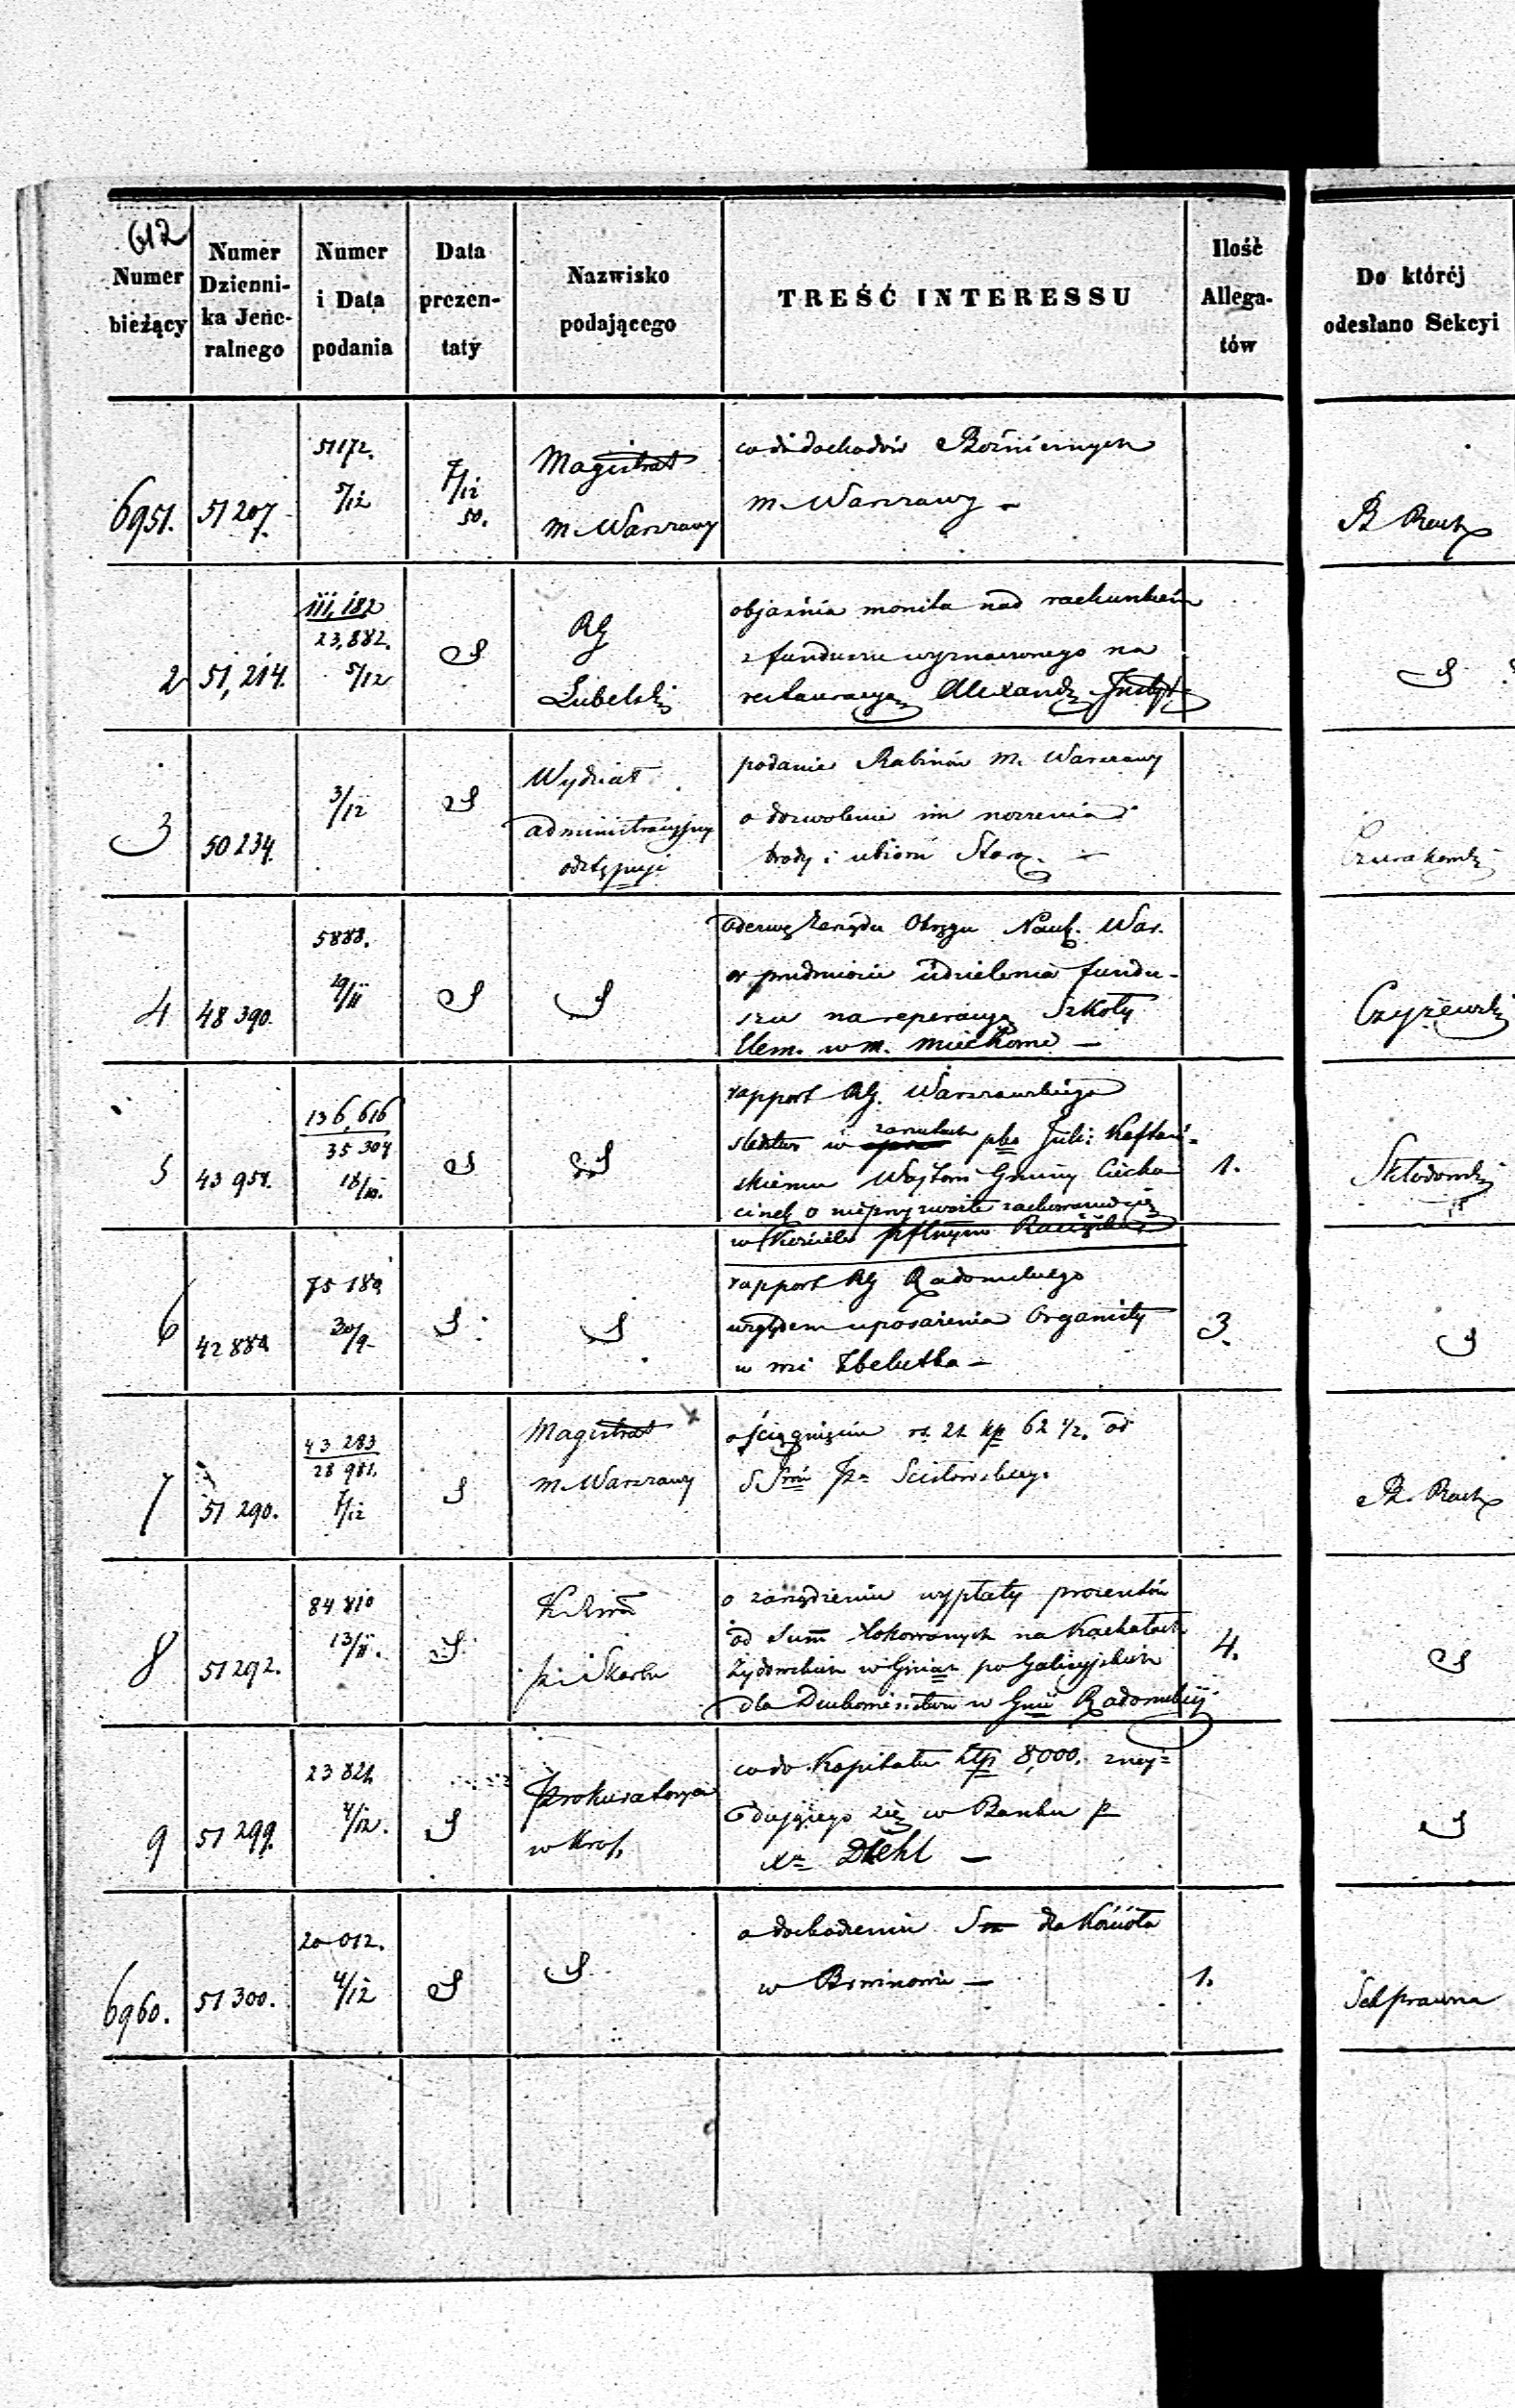 612
Numer bieżący
Numer Dzienni- ka Jene- ralnego
Numer i Data podania
Data prezen- taty
Nazwisko podającego
TREŚĆ INTERESSU
Ilość Allega- tów
Do któréj odesłano Sekcyi
6951.
51207.
51172.
5/12
7/12
50.
Magistrat
m. Warszawy
co do dochodów Bóźniczych
m. Warszawy –
B Rach
2
51,214.
111,182
23,882.
5/12
RG
Lubelski
objaśnia monita nad rachunkiem
z funduszu wyznaczonego na
restauracyą Alexandr Instyt
3
50234.
3/12
Wydział
administracyjny
odstępuje
podanie Rabinów m. Warszawy
o dozwolenie im noszenia
brody i ubioru Staroz. –
4
48390.
5888.
19/11
odezwę Zarządu Okręgu Nauk. War.
w przedmiocie udzielenia fundu-
szu na reperacyą Szkoły
Elem. w m. Miechowie –
Czyżewski
5
43958.
136,616
35304
18/10.
rapport RG. Warszawskiego
śledztwo w zarzutach pko Juli: Kaftań-
skiemu Wójtowi Gminy Ciecho
cinek o nieprzyzwoite zachowanie się
w Kościele
1.
Skłodowski
6
42884
75189
30/9
rapport RG Radomskiego
względem uposażenia Organisty
w wsi Zbelutka –
3.
7
51290.
43283
28981.
7/12
Magistrat
m. Warszawy
o ściągnięciu rs. 21 kp 62 1/2. od
B. Rach
8
51292.
84810
13/11.
P. i Skarbu
o zarządzeniu wypłaty procentów
od Summ lokowanych na Kahałach
Żydowskich w Gminach po Galicyjskich
dla Duchowieństwa w Gnii Radomskiej
4.
9
51299.
23821
4/12.
Prokuratorya
w Król.
co do Kapitału złp 8,000. znay-
dującego się w Banku P
Xa Diehl –
6960.
51300.
20012.
4/12
o dochodzeniu Sm dla Kościoła
w –
1.
Sek Prawna